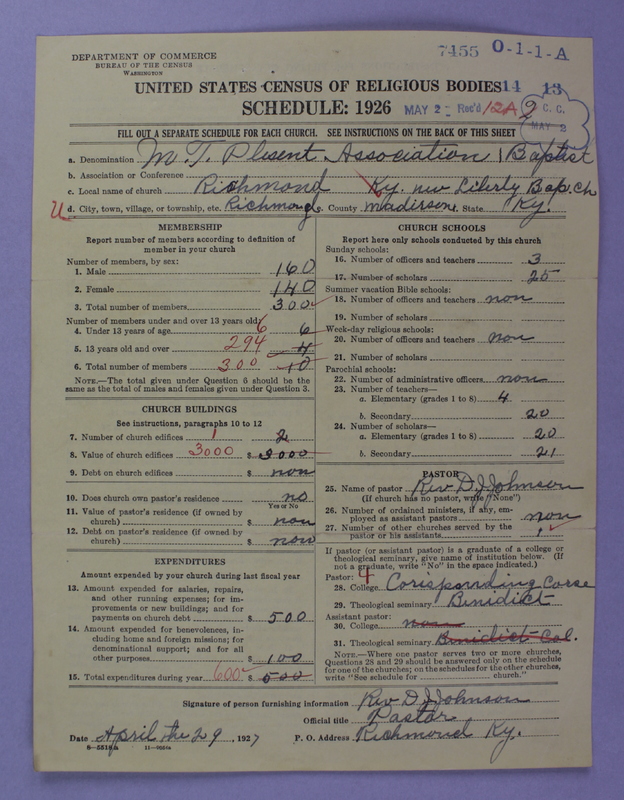 DEPARTMENT OF COMMERCE
BUREAU OF THE CENSUS
WASHINGTON
7455 0-1-1-A
UNITED STATES CENSUS OF RELIGIOUS BODIES 14 13
SCHEDULE: 1926 MAY 2 - Rec'd 12A 2 C. C.
MAY 2
FILL OUT A SEPARATE SCHEDULE FOR EACH CHURCH. SEE INSTRUCTIONS ON THE BACK OF THIS SHEET
a. Denomination M T. Plesent Association Baptist
b. Association or Conference
c. Local name of church Richmond Ky. new Liberty Bap. ch
d. City, town, village, or township, etc. Richmond e. County Madirson f. State Ky.
MEMBERSHIP
Report number of members according to definition of member in your church
Number of members, by sex:
1. Male 160
2. Female 140
3. Total number of members 300
Number of members under and over 13 years old:
4. Under 13 years of age 6 6
5. 13 years old and over 294 4
6. Total number of members 300 10
NOTE.—The total given under Question 6 should be the
same as the total of males and females given under Question 3.
CHURCH BUILDINGS
See instructions, paragraphs 10 to 12
7. Number of church edifices 1 2
8. Value of church edifices 3000 $ 3000
9. Debt on church edifices $ non
10. Does church own pastor's residence no
Yes or No
11. Value of pastor's residence (if owned by
church) $ non
12. Debt on pastor's residence (if owned by
church) $ non
EXPENDITURES
Amount expended by your church during last fiscal year
13. Amount expended for salaries, repairs,
and other running expenses; for im-
provements or new buildings; and for
payments on church debt $ 500
14. Amount expended for benevolences, in-
cluding home and foreign missions; for
denominational support; and for all
other purposes $ 100
15. Total expenditures during year 600 $ 500
CHURCH SCHOOLS
Report here only schools conducted by this church
Sunday schools:
16. Number of officers and teachers 3
17. Number of scholars 25
Summer vacation Bible schools:
18. Number of officers and teachers non
19. Number of scholars
Week-day religious schools:
20. Number of officers and teachers non
21. Number of scholars
Parochial schools:
22. Number of administrative officers non
23. Number of teachers—
a. Elementary (grades 1 to 8) 4
b. Secondary 20
24. Number of scholars—
a. Elementary (grades 1 to 8) 20
b. Secondary 21
PASTOR
25. Name of pastor Rev D. J Johnson
(If church has no pastor, write "None")
26. Number of ordained ministers, if any, em-
ployed as assistant pastors non
27. Number of other churches served by the
pastor or his assistants 1
If pastor (or assistant pastor) is a graduate of a college or
theological seminary, give name of institution below. (If
not a graduate, write "No" in the space indicated.)
Pastor: 4
28. College Corisponding Corse
29. Theological seminary Binidict
Assistant pastor:
30. College non
31. Theological seminary Binidict Col.
NOTE.—Where one pastor serves two or more churches,
Questions 28 and 29 should be answered only on the schedule
for one of the churches; on the schedules for the other churches,
write "See schedule for church."
Signature of person furnishing information Rev D. J Johnson
Official title Pastor
Date April the 29, 1927 P. O. Address Richmond Ky.